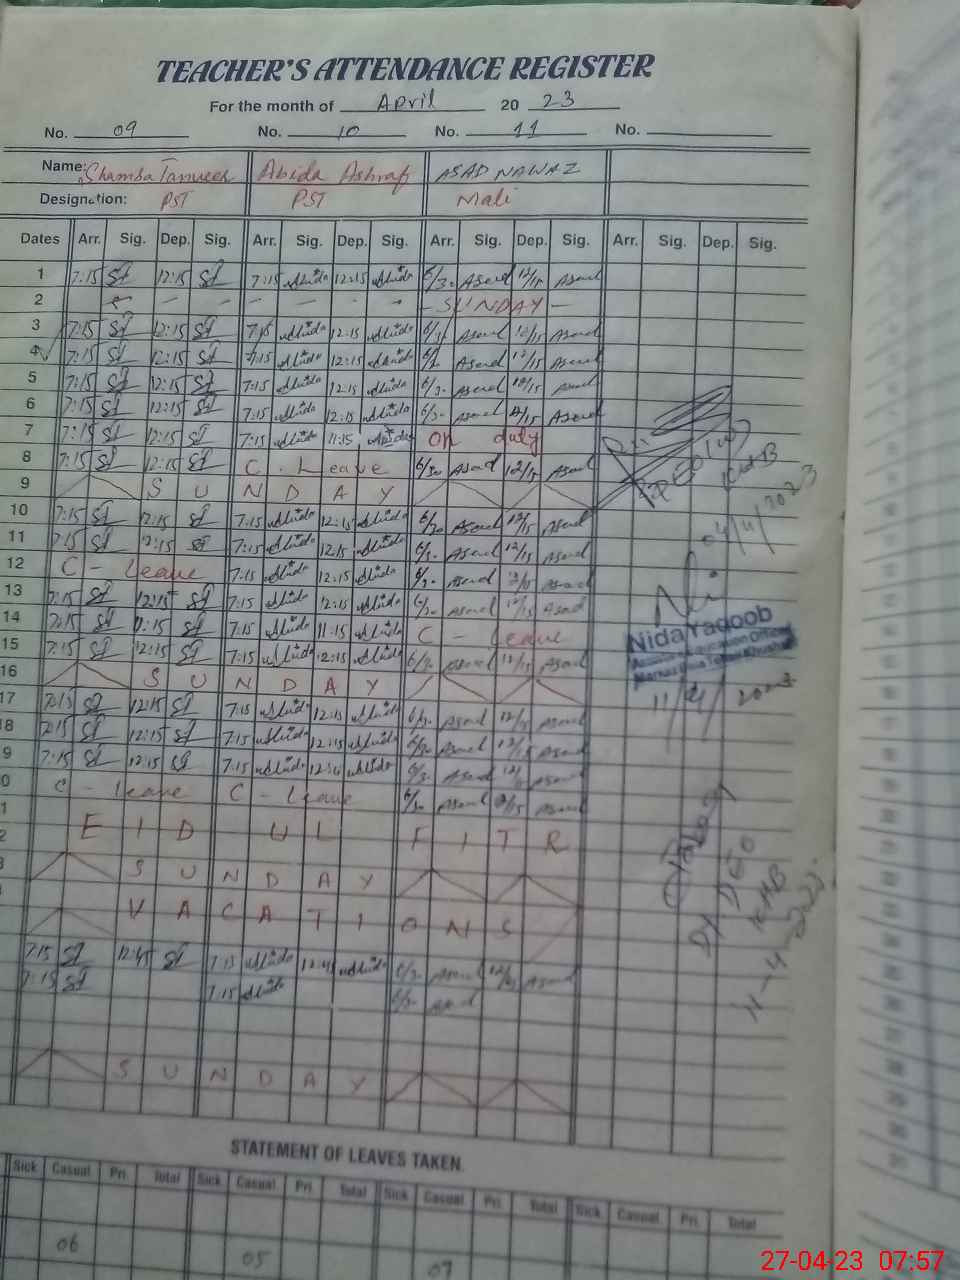 TEACHER'S ATTENDANCE REGISTER
For the month of April 20 23
No. 09 No. 10 No. 11 No.
Name: Shamsa Tanveer Abida Ashraf ASAD NAWAZ
Designation: PST PST Mali
Dates Arr. Sig. Dep. Sig. Arr. Sig. Dep. Sig. Arr. Sig. Dep. Sig. Arr. Sig. Dep. Sig.
1 7:15 12:15 7:15 Abida 12:15 Abida 6/30 Asad 12/15 Asad
2 - SUNDAY -
3 7:15 12:15 7:15 Abida 12:15 Abida 6/30 Asad 12/15 Asad
4 7:15 12:15 7:15 Abida 12:15 Abida 6/30 Asad 12/15 Asad
5 7:15 12:15 7:15 Abida 12:15 Abida 6/30 Asad 12/15 Asad
6 7:15 12:15 7:15 Abida 12:15 Abida 6/30 Asad 12/15 Asad
7 7:15 12:15 7:15 Abida 11:15 Abida on duty
8 7:15 12:15 C. Leave 6/30 Asad 12/15 Asad
9 S U N D A Y
10 7:15 12:15 7:15 Abida 12:15 Abida 6/30 Asad 12/15 Asad
11 7:15 12:15 7:15 Abida 12:15 Abida 6/30 Asad 12/15 Asad
12 C - leave 7:15 Abida 12:15 Abida 6/30 Asad 12/15 Asad
13 7:15 12:15 7:15 Abida 12:15 Abida 6/30 Asad 12/15 Asad
14 7:15 11:15 7:15 Abida 11:15 Abida C - leave
15 7:15 12:15 7:15 Abida 12:15 Abida 6/30 Asad 12/15 Asad
16 S U N D A Y
17 7:15 12:15 7:15 Abida 12:15 Abida 6/30 Asad 12/15 Asad
8 7:15 12:15 7:15 Abida 12:15 Abida 6/30 Asad 12/15 Asad
9 7:15 12:15 7:15 Abida Abida 6/30 Asad Asad
0 C - leave C - leave 6/30 Asad 12/15 Asad
1
2 E I D U L F I T R
3 S U N D A Y
V A C A T I O N S
7:15 12:45 7:15 Abida 12:45 Abida 6/30 Asad 12/45 Asad
7:15 7:15 Abida 6/30 Asad
S U N D A Y
04/4/2023
Nida Yaqoob
11/4/2023
Dy DEO
KHB
11-4-2023
STATEMENT OF LEAVES TAKEN.
Sick Casual Pri. Total Sick Casual Pri. Total Sick Casual Pri. Total Sick Casual Pri. Total
06 05 07
27-04-23 07:57